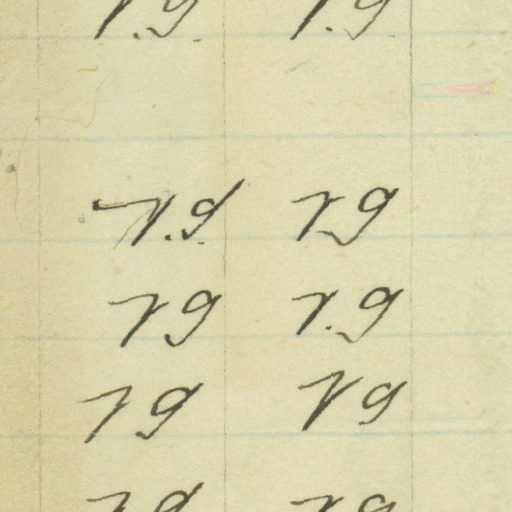 7.9 7.9
7.9 79
79 7.9
79 79
79 79